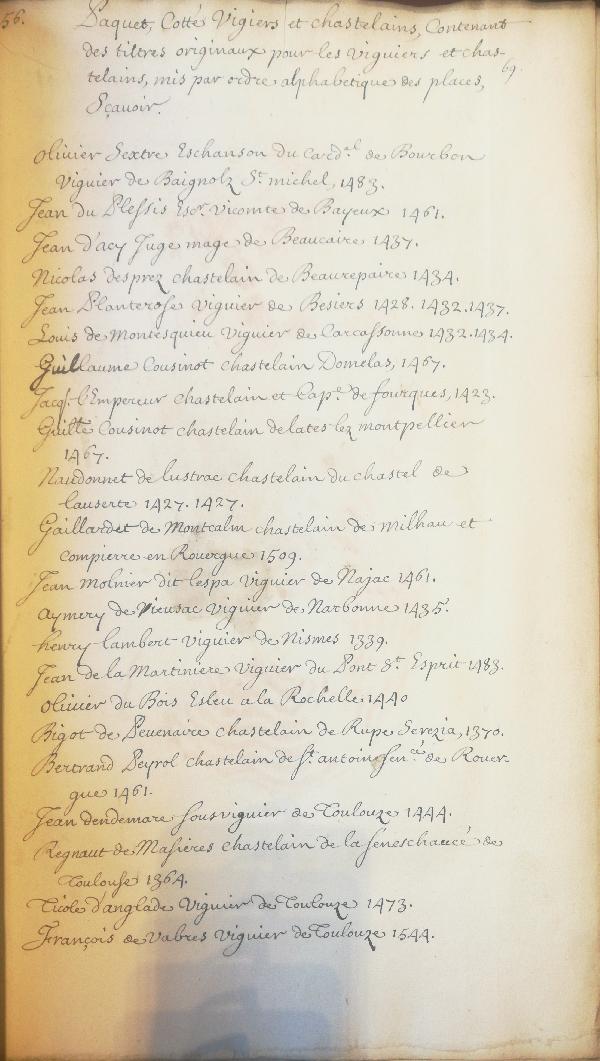 56.
Paquet, Cotté Vigiers et chastelains, Contenant
des tiltres originaux pour les viguiers et chas-
telains, mis par ordre alphabetique des places,
69.
Sçauoir.
Oliuier Sextre Eschanson du Card.al de Bourbon
Viguier de Baignolz St. michel, 1483.
Jean du Plessis Escr. Vicomte de Bayeux 1461.
Jean d'acy Juge mage de Beaucaire 1437.
Nicolas desprez chastelain de Beaurepaire 1434.
Jean Planterose Viguier de Besiers 1428. 1432. 1437.
Louis de Montesquieu Viguier de Carcassonne 1432. 1434.
Guillaume Cousinot chastelain Domelas, 1467.
Jacq. l'Empereur chastelain et Cap.e de fourques, 1423.
Guille Cousinot chastelain de lates lez montpellier
1467.
Naudonnet de lustrac chastelain du chastel de
lauserte 1427. 1427.
Gaillardet de Montcalm chastelain de milhau et
compierre en Rouergue 1509.
Jean molnier dit lespa viguier de Najac 1461.
aymery de Vieusac Viguier de Narbonne 1435.
henry lambert viguier de Nismes 1339.
Jean de la Martiniere Viguier du Pont St. Esprit 1483.
Oliuier du Bois Esleu a la Rochelle 1440
Bigot de Peuenaire chastelain de Rupe Serezia, 1370.
Bertrand Peyrol chastelain de St. antoin sen.cé de Rouer-
gue 1461.
Jean dendemare sous viguier de Toulouze 1444.
Regnaut de Masieres chastelain de la seneschaucé de
Toulouse 1364.
Ticole d'anglade Viguier de Toulouze 1473.
François de Vabres Viguier de Toulouze 1544.